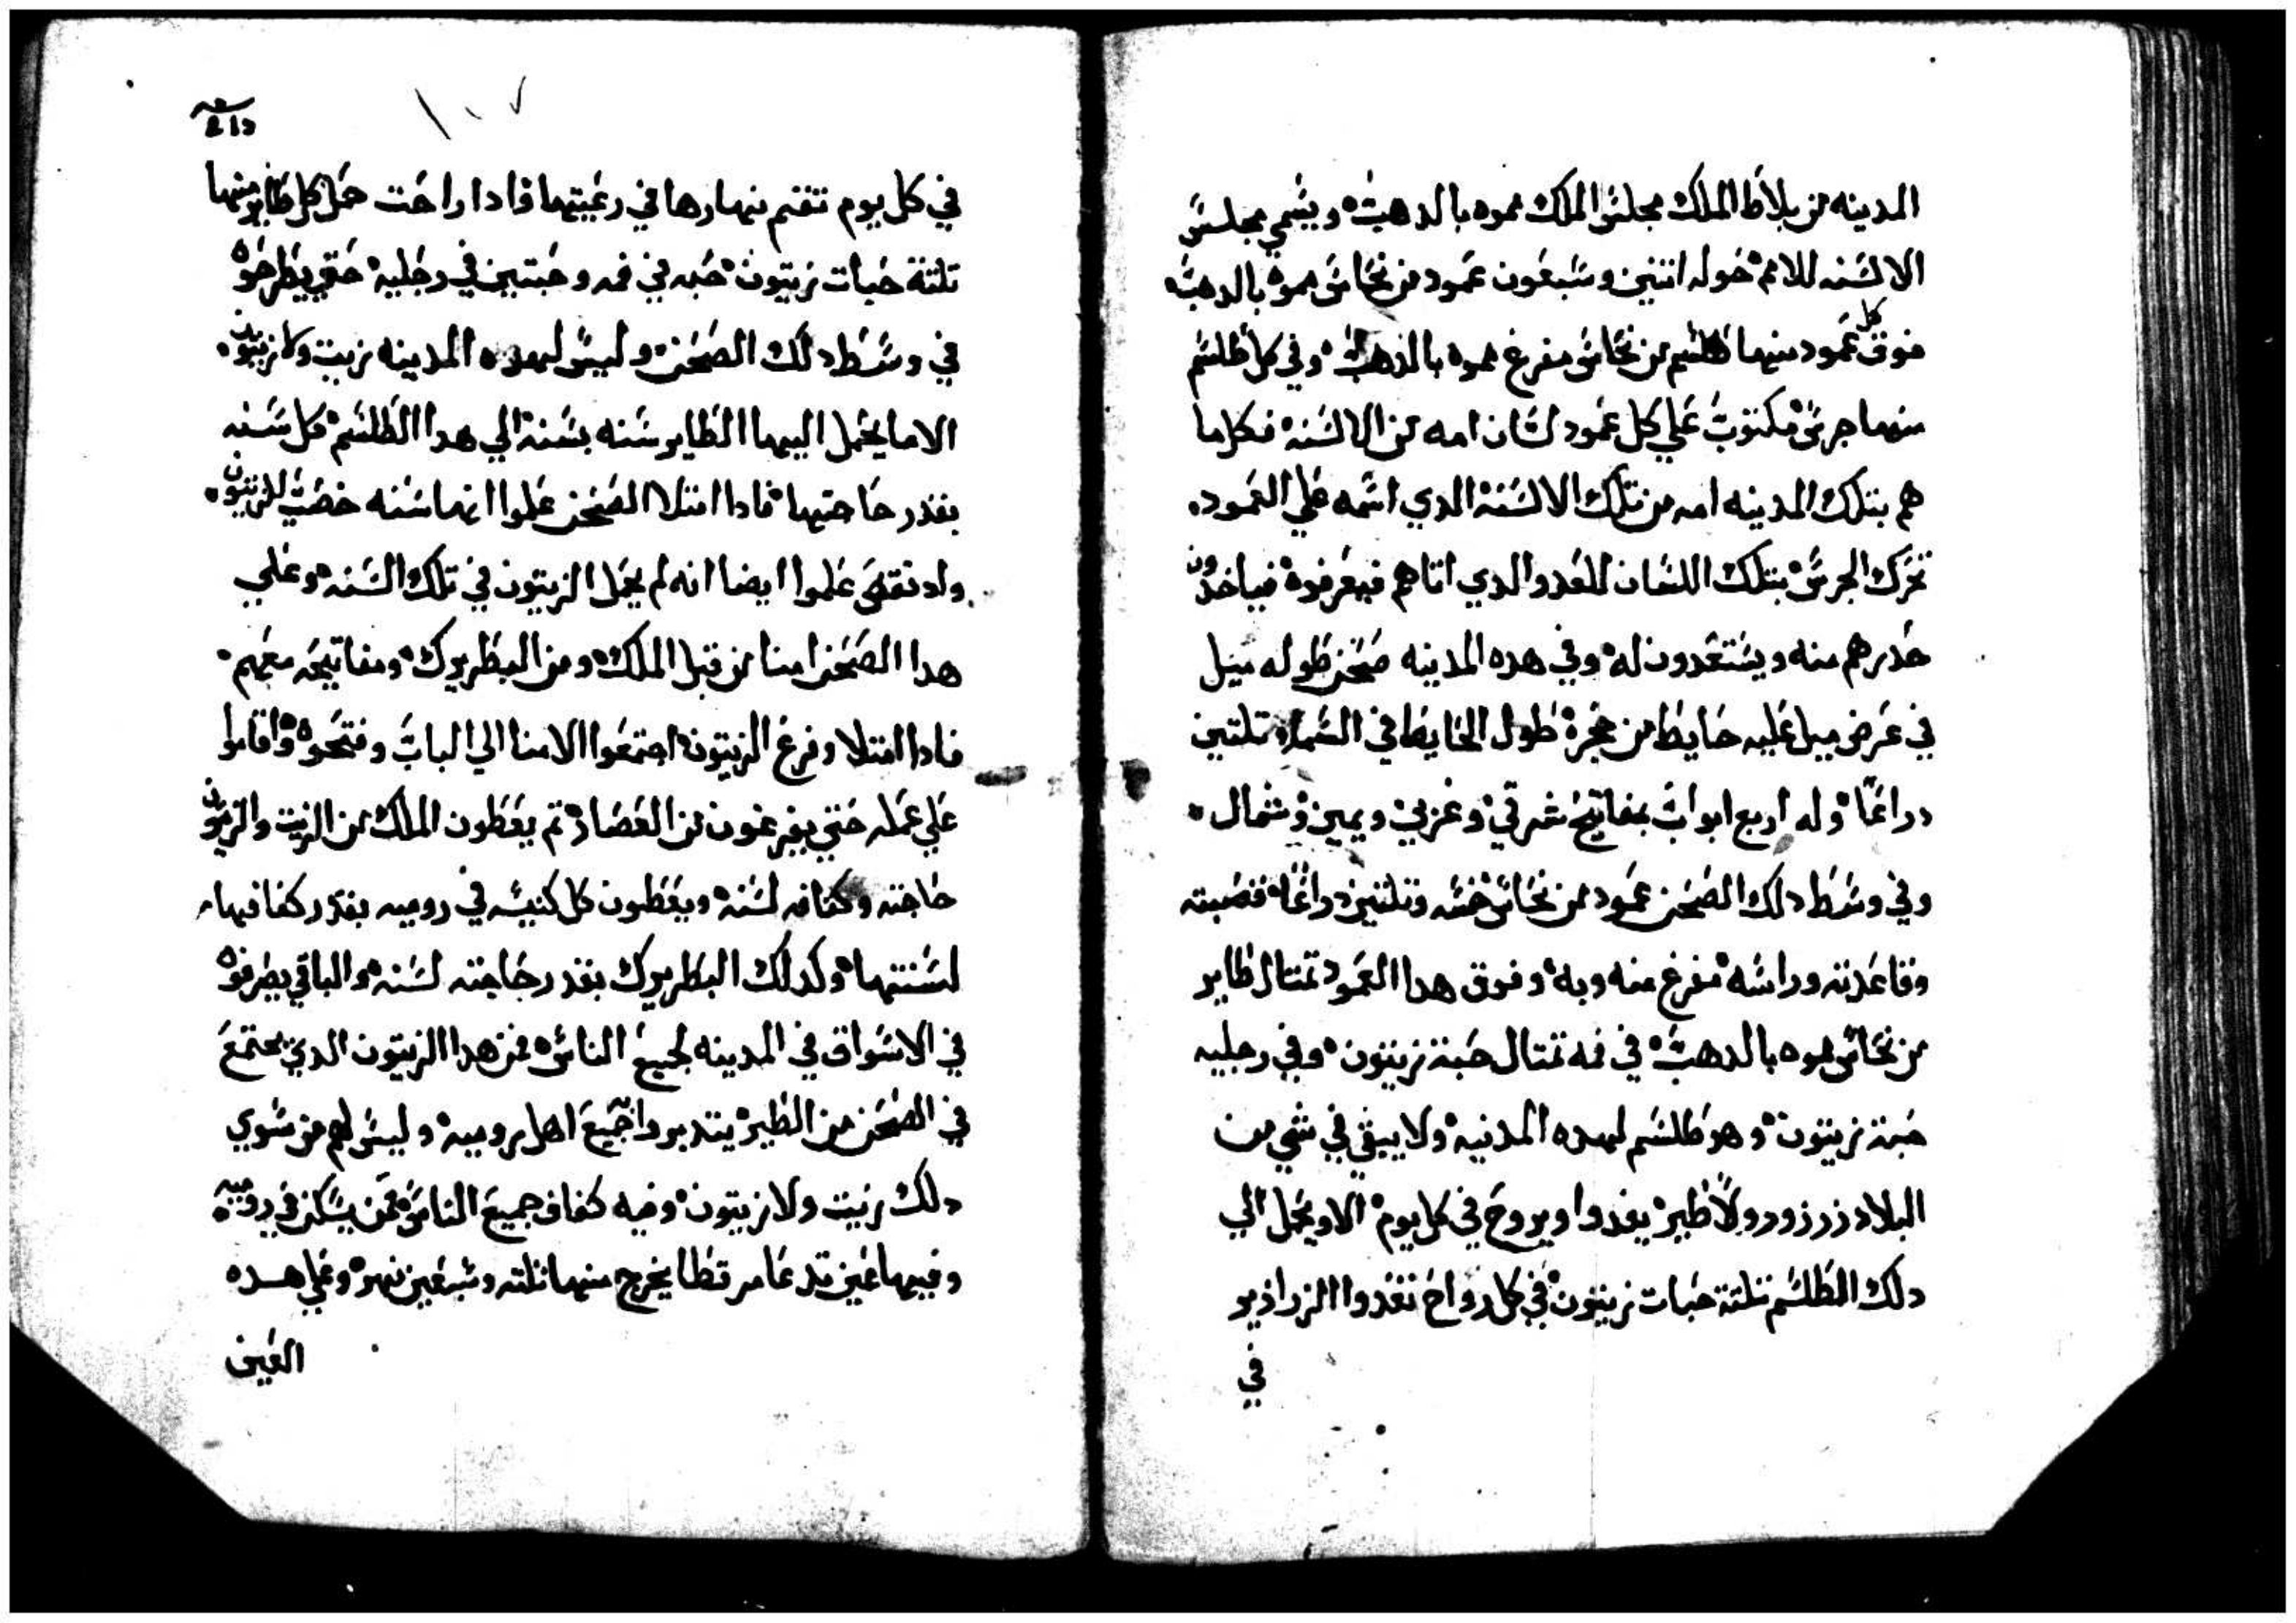 المدينه من بلاط الملك مجلس الملك مموه بالدهب ويسمي مجلس
الالسنه للامم حوله اتنين وسبعون عمود من نحاس مموه بالدهب
فوق كل عمود منها طلسم من نحاس مفرغ مموه بالذهب وفي كل طلسم
منها جرس مكتوب علي كل عمود لسان امه من الالسنه فكلما
هم بتلك المدينه امه من تلك الالسنه الدي اسمه علي العمود
تحرك الجرس بتلك اللسان للعدو الدي اتاهم فيعرفوه فياخدون
حدرهم منه ويستعدون له وفي هده المدينه صحن طوله ميل
في عرض ميل عليه حايط من حجره طول الحايط في السما تلتين
دراعًا وله اربع ابواب بمفاتيح شرقي وغربي ويمين وشمال
وفي وسط دلك الصحن عمود من نحاس خمسه وتلتين دراعًا قصبته
وقاعدته وراسه مفرغ منه وبه وفوق هدا العمود تمتال طاير
من نحاس مموه بالدهب في فمه تمتال حبة زيتون وفي رجليه
حبة زيتون وهو طلسم لهده المدنيه ولا يبقي في شي من
البلاد زرزور ولا طير يغدوا ويروح في كل يوم الا ويحمل الي
دلك الطلسم تلتة حبات زيتون في كل رواح تغدوا الزرازير
في
١٠٧
في كل يوم تقتم نهارها في رعيتها فادا راحت حمل كل طاير منها
تلتة حبات زيتون حبه في فمه وحبتين في رجليه حتي يطرحوه
في وسط دلك الصحن وليس لهده المدينه زيت ولا زيتون
الا ما يحمل اليها الطاير سنه بسنة الي هدا الطلسم كل سنه
بقدر حاجتها فادا امتلا الصحن علموا انها سنه خصب للزيتون
واد نقص علموا ايضا انه لم يحمل الزيتون في تلك السنه وعلي
هدا الصحن امنا من قبل الملك ومن البطريرك ومفاتيحه معهم
فادا امتلا وفرغ الزيتون اجتمعوا الامنا الي الباب وفتحوه واقاموا
علي عمله حتي يفرغون من العصاره تم يعطون الملك من الزيت والزيتون
حاجته وكفافه لسنه ويعطون كل كنيسه في روميه بقدر كفافها
لسنتها وكدلك البطريرك بقدر حاجته لسنه والباقي يصرفوه
في الاسواق في المدينه لجميع الناس فمن هدا الزيتون الدي يجتمع
في الصحن من الطير يتدبروا جميع اهل روميه وليس لهم من سوي
دلك زيت ولا زيتون وفيه كفاف جميع الناس ممن يسكن في روميه
وفيها عين تدعا مرقطا يخرج منها تلته وسبعين نهره وعلي هده
العين